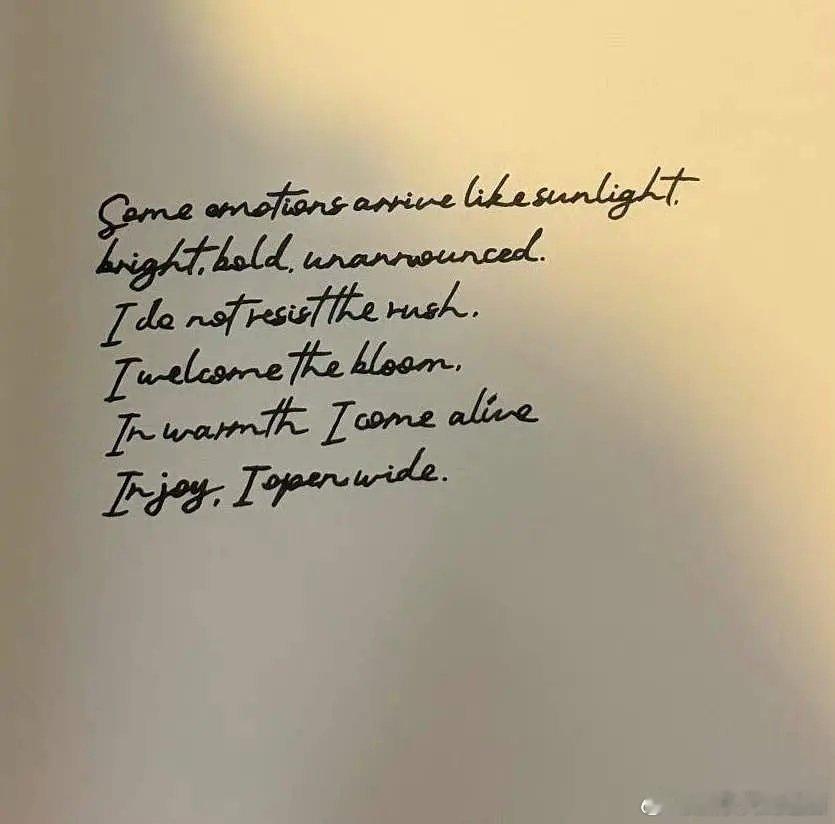 Some emotions arrive like sunlight,
bright, bold, unannounced.
I do not resist the rush.
I welcome the bloom.
In warmth I come alive
In joy, I open wide.